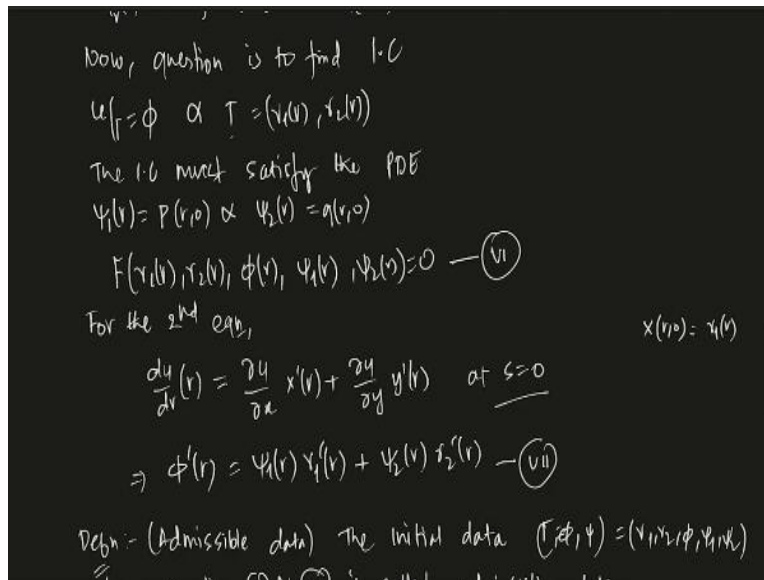 Now, question is to find I.C
u|_Γ = φ & Γ = (γ₁(r), γ₂(r))
The I.C must satisfy the PDE
ψ₁(r) = p(r,0) & ψ₂(r) = q(r,0)
F(γ₁(r), γ₂(r), φ(r), ψ₁(r), ψ₂(r)) = 0 — (VI)
For the 2nd eqn,
x(r,0) = γ₁(r)
du/dr (r) = ∂u/∂x x'(r) + ∂u/∂y y'(r) at s=0
⇒ φ'(r) = ψ₁(r) γ₁'(r) + ψ₂(r) γ₂'(r) — (VII)
Defn :- (Admissible data) The initial data (Γ, φ, ψ) = (γ₁, γ₂, φ, ψ₁, ψ₂)